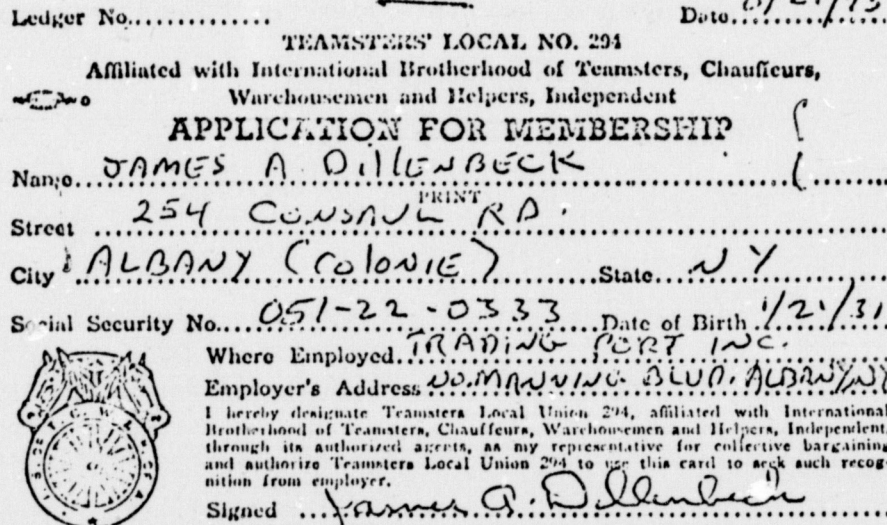 Ledger No.............. Date..............
TEAMSTERS' LOCAL NO. 294
Affiliated with International Brotherhood of Teamsters, Chauffeurs,
Warehousemen and Helpers, Independent
APPLICATION FOR MEMBERSHIP
Name JAMES A DillENBECK
PRINT
Street 254 CONSAUL RD.
City ALBANY (COlONIE) State NY
Social Security No. 051-22-0333 Date of Birth 1/21/31
Where Employed TRADING PORT INC.
Employer's Address NO. MANNING BLVD. ALBANY NY
I hereby designate Teamsters Local Union 294, affiliated with International
Brotherhood of Teamsters, Chauffeurs, Warehousemen and Helpers, Independent,
through its authorized agents, as my representative for collective bargaining
and authorize Teamsters Local Union 294 to use this card to seek such recog-
nition from employer.
Signed James A. Dillenbeck